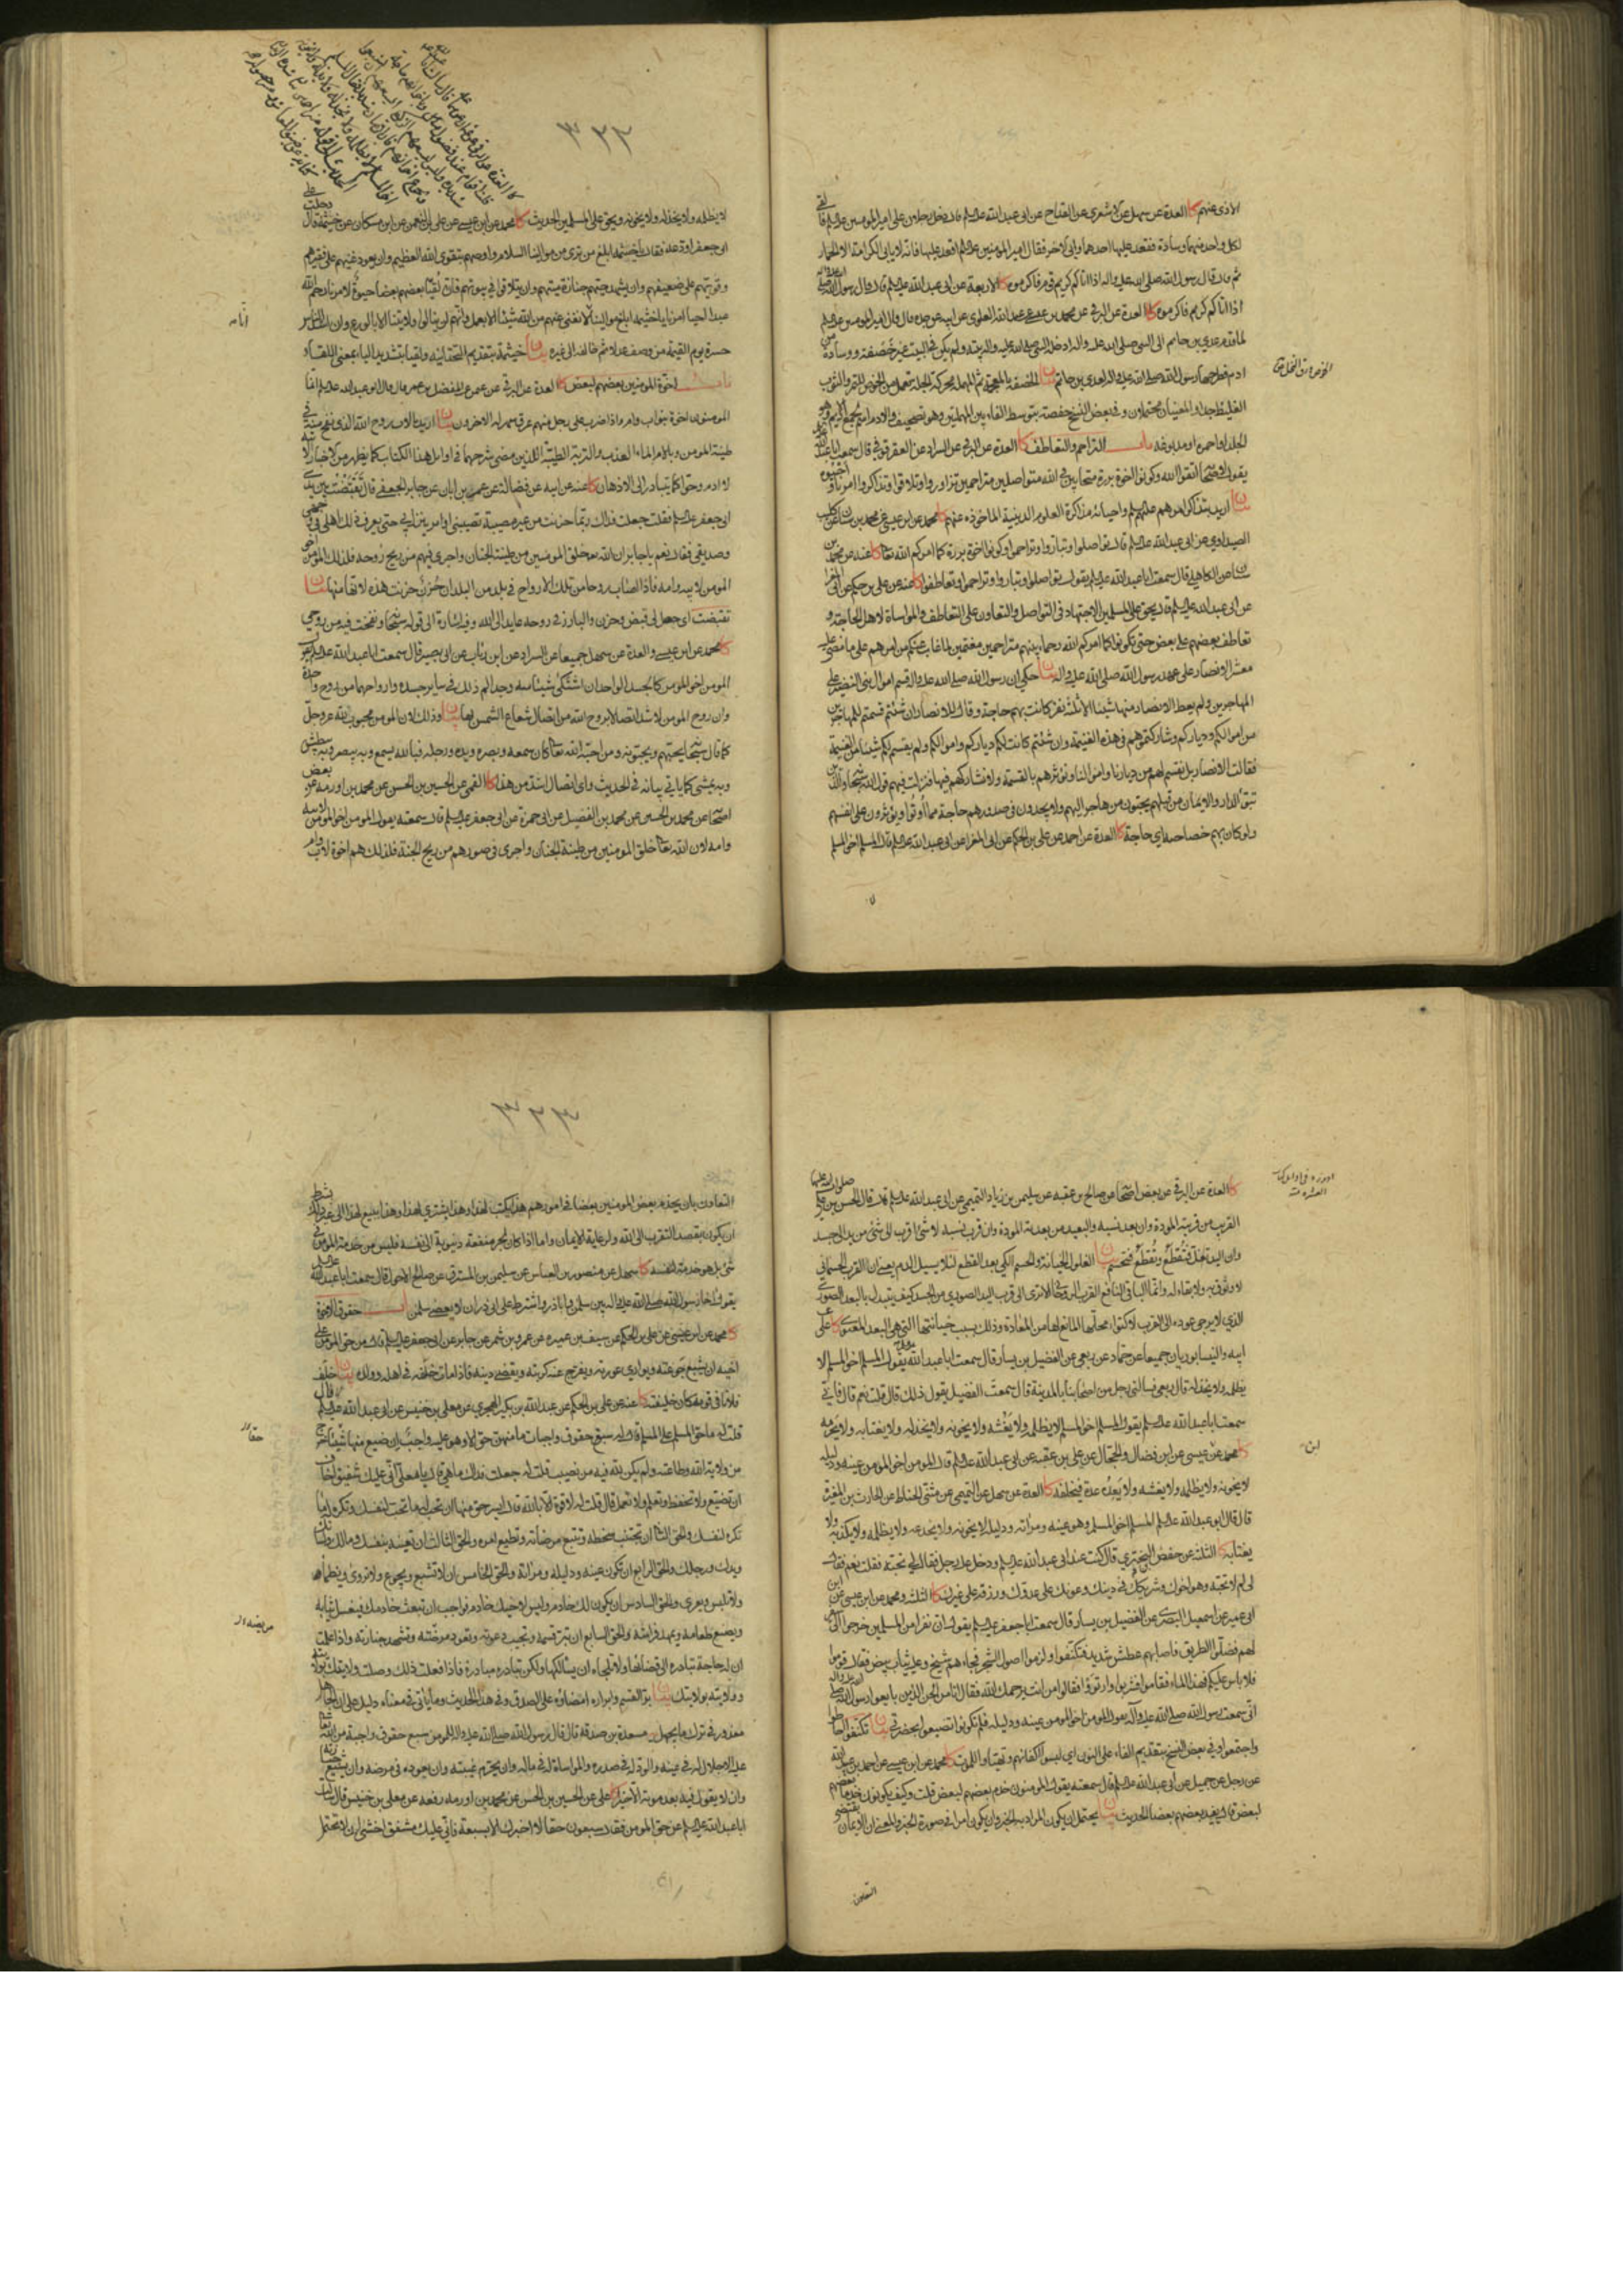 الاذى عنهم كا العدة عن سهل عن الاشعري عن القداح عن ابى عبد الله عليه السلم قال دخل رجلان على امير المومنين عليه السلم فالقى
لكل واحد منهما وسادة فقعد عليها احدهما وابى الاخر فقال امير المومنين عليه السلم اقعد عليها فانه لا يابى الكرامة الا الحمار
ثم قال قال رسول الله صلى الله عليه واله اذا اتاكم كريم قوم فاكرموه كا الاربعة عن ابى عبد الله عليه السلم قال قال رسول الله صلى الله عليه واله
اذا اتاكم كريم قوم فاكرموه كا العدة عن البرقي عن محمد بن عيسى عن عبد الله العلوي عن ابيه عن جده قال قال امير المومنين عليه السلم
لما قدم عدي بن حاتم الى النبي صلى الله عليه واله ادخله النبي صلى الله عليه واله بيته ولم يكن في البيت غير خصفة ووسادة من
ادم فطرحها رسول الله صلى الله عليه واله لعدي بن حاتم بيان الخصفة بالمعجمة ثم المهملة محركة الجلة تعمل من الخوص للتمر والثوب
الغليظ جدا والمعنيان محتملان وفي بعض النسخ حفصة بتوسط الفاء بين المهملتين وهو تصحيف والادم اسم لجمع اديم وهو
الجلد او احمره او مدبوغه باب التراحم والتعاطف كا العدة عن البرقي عن السراد عن العقرقوفي قال سمعت ابا عبد الله عليه السلم
يقول لاصحابه اتقوا الله وكونوا اخوة بررة متحابين في الله متواصلين متراحمين تزاوروا وتلاقوا وتذاكروا امرنا واحيوه
بيان اريد بتذاكر امرهم عليهم السلم واحيائه مذاكرة العلوم الدينية الماخوذه عنهم كا محمد عن ابن عيسى عن محمد بن سنان عن كليب
الصيداوي عن ابى عبد الله عليه السلم قال تواصلوا وتباروا وتراحموا وكونوا اخوة بررة كما امركم الله تعالى كا عنه عن محمد بن
سنان عن الكاهلي قال سمعت ابا عبد الله عليه السلم يقول تواصلوا وتباروا وتراحموا وتعاطفوا كا عنه عن علي بن الحكم عن ابى المغرا
عن ابى عبد الله عليه السلم قال يحق على المسلمين الاجتهاد في التواصل والتعاون على التعاطف والمواساة لاهل الحاجة و
تعاطف بعضهم على بعض حتى تكونوا كما امركم الله رحماء بينهم متراحمين مغتمين لما غاب عنكم من امرهم على ما مضى عليه
معشر الانصار على عهد رسول الله صلى الله عليه واله بيان حكي ان رسول الله صلى الله عليه واله قسم اموال بنى النضير على
المهاجرين ولم يعط الانصار منها شيئا الا ثلثة نفر كانت بهم حاجة وقال للانصار ان شئتم قسمتم للمهاجرين
من اموالكم ودياركم وشاركتموهم في هذه الغنيمة وان شئتم كانت لكم دياركم واموالكم ولم يقسم لكم شيئا من الغنيمة
فقالت الانصار بل نقسم لهم من ديارنا واموالنا ونوثرهم بالقسمة ولا نشاركهم فيها فنزلت فيهم قول الله سبحانه والذين
تبوؤا الدار والايمان من قبلهم يحبون من هاجر اليهم ولا يجدون في صدورهم حاجة مما اوتوا ويوثرون على انفسهم
ولو كان بهم خصاصة اي حاجة كا العدة عن احمد عن علي بن الحكم عن ابى المغرا عن ابى عبد الله عليه السلم قال المسلم اخو المسلم
لا
٣٢٢
لا يظلمه ولا يخذله ولا يخونه ويحق على المسلمين الحديث كا محمد عن ابن عيسى عن علي بن النعمن عن ابن مسكان عن خيثمة قال دخلت على
ابى جعفر اودعه فقال يا خيثمة ابلغ من ترى من موالينا السلام واوصهم بتقوى الله العظيم وان يعود غنيهم على فقيرهم
وقويهم على ضعيفهم وان يشهد حيهم جنازة ميتهم وان يتلاقوا في بيوتهم فان لقيا بعضهم بعضا حيوة لامرنا رحم الله
عبدا احيا امرنا يا خيثمة ابلغ موالينا الا نغنى عنهم من الله شيئا الا بعمل وانهم لن ينالوا ولايتنا الا بالورع وان اشد الناس
حسرة يوم القيمة من وصف عدلا ثم خالفه الى غيره بيان خيثمة بتقديم التحتانية ولقيا بتشديد الياء بمعنى اللقاء
باب اخوة المومنين بعضهم لبعض كا العدة عن البرقي عن عثمان عن المفضل بن عمر قال قال ابو عبد الله عليه السلم انما
المومنون اخوة بنو اب وام واذا ضرب على رجل منهم عرق سهر له الاخرون بيان اريد بالاب روح الله الذي نفخ منه في
طينة المومن وبالام الماء العذب والتربة الطيبة اللذين مضى شرحهما في اوايل هذا الكتاب كما يظهر من الاخبار الاتية
لا ادم وحوا كما يتبادر الى الاذهان كا عنه عن ابيه عن فضالة عن عمر بن ابان عن جابر الجعفي قال تقبضت بين يدي
ابى جعفر عليه السلم فقلت جعلت فداك ربما حزنت من غير مصيبة تصيبنى او امر ينزل بي حتى يعرف ذلك اهلى في وجهى
وصديقى فقال نعم يا جابر ان الله خلق المومنين من طينة الجنان واجرى فيهم من ريح روحه فلذلك المومن اخو
المومن لابيه وامه فاذا اصاب روحا من تلك الارواح في بلد من البلدان حزن حزنت هذه لانها منها بيان
تقبضت اي حصل لى قبض وحزن والبارز في روحه عايد الى الله وفيه اشارة الى قوله سبحانه ونفخت فيه من روحى
كا محمد عن ابن عيسى والعدة عن سهل جميعا عن السراد عن ابن رئاب عن ابى بصير قال سمعت ابا عبد الله عليه السلم يقول
المومن اخو المومن كالجسد الواحد ان اشتكى شيئا منه وجد الم ذلك في ساير جسده وارواحهما من روح واحدة
وان روح المومن لاشد اتصالا بروح الله من اتصال شعاع الشمس بها بيان وذلك لان المومن محبوب لله عز وجل
كما قال سبحانه يحبهم ويحبونه ومن احبه الله تعالى كان سمعه وبصره ويده ورجله فبالله يسمع وبه يبصر وبه يبطش
وبه يمشى كما ياتى بيانه في الحديث واي اتصال اشد من هذا كا القمي عن الحسين بن الحسن عن محمد بن اورمة عن بعض
اصحابه عن محمد بن الحسين عن محمد بن الفضيل عن ابى حمزة عن ابى جعفر عليه السلم قال سمعته يقول المومن اخو المومن لابيه
وامه لان الله تعالى خلق المومنين من طينة الجنان واجرى في صورهم من ريح الجنة فلذلك هم اخوة لاب وام
كا العدة عن البرقي عن بعض اصحابه عن صالح بن عقبة عن سليمن بن زياد التميمي عن ابى عبد الله عليه السلم قال قال الحسن بن علي صلوات الله عليهما
القريب من قربته المودة وان بعد نسبه والبعيد من بعدته المودة وان قرب نسبه لا شئ اقرب الى شئ من يد الى جسد
وان اليد تغل فتقطع وتقطع فتحسم بيان الغلول الخيانة والحسم الكي بعد القطع لئلا يسيل الدم يعنى ان القرب الجسماني
لا وثوق به ولا بقاء له وانما الباقى النافع القرب الروحاني الا ترى الى قرب اليد الصوري من الجسد كيف يتبدل بالبعد الصوري
الذي لا يرجى عوده الى القرب لاكتواء محلها المانع لها من المعاودة وذلك بسبب خيانتها التي هي البعد المعنوي كا علي عن
ابيه والنيسابوريان جميعا عن حماد عن ربعي عن الفضيل بن يسار قال سمعت ابا عبد الله عليه السلم يقول المسلم اخو المسلم لا
يظلمه ولا يخذله قال ربعي فسالنى رجل من اصحابنا بالمدينة قال سمعت الفضيل يقول ذلك قال قلت نعم قال فاني
سمعت ابا عبد الله عليه السلم يقول المسلم اخو المسلم لا يظلمه ولا يغشه ولا يخونه ولا يخذله ولا يغتابه ولا يحرمه
كا محمد عن ابن عيسى عن ابن فضال والحجال عن علي بن عقبة عن ابى عبد الله عليه السلم قال المومن اخو المومن عينه ودليله
لا يخونه ولا يظلمه ولا يغشه ولا يعده عدة فيخلفه كا العدة عن سهل عن التميمي عن مثنى الحناط عن الحارث بن المغيرة
قال قال ابو عبد الله عليه السلم المسلم اخو المسلم وهو عينه ومراته ودليله لا يخونه ولا يخدعه ولا يظلمه ولا يكذبه ولا
يغتابه كا الثلثة عن حفص بن البختري قال كنت عند ابى عبد الله عليه السلم ودخل عليه رجل فقال لي تحبه فقلت نعم فقال
لى لم لا تحبه وهو اخوك وشريكك في دينك وعونك على عدوك ورزقه على غيرك كا الثلثة ومحمد عن ابن عيسى عن ابن
ابى عمير عن اسمعيل البصري عن الفضيل بن يسار قال سمعت ابا جعفر عليه السلم يقول ان نفرا من المسلمين خرجوا الى سفر
لهم فضلوا الطريق فاصابهم عطش شديد فتكنفوا ولزموا اصول الشجر فجاءهم شيخ وعليه ثياب بيض فقال قوموا
فلا باس عليكم فهذا الماء فقاموا فشربوا وارتووا فقالوا من انت يرحمك الله فقال انا من الجن الذين بايعوا رسول الله صلى الله عليه واله
اني سمعت رسول الله صلى الله عليه وآله يقول المومن اخو المومن عينه ودليله فلم تكونوا تضيعوا بحضرتي بيان تكنفوا احاطوا
واجتمعوا وفي بعض النسخ بتقديم الفاء على النون اي لبسوا اكفانهم وتهيئوا للموت كا محمد عن ابن عيسى عن احمد بن عبد الله
عن رجل عن جميل عن ابى عبد الله عليه السلم قال سمعته يقول المومنون خدم بعضهم لبعض قلت وكيف يكونون خدما بعضهم
لبعض قال يفيد بعضهم بعضا الحديث بيان يحتمل ان يكون المراد به الخبر وان يكون امرا في صورة الخبر والمعنى ان الايمان يقتضى
التعاون
٣٢٣
التعاون بان يخدم بعض المومنين بعضا في امورهم هذا يكتب لهذا وهذا يشتري لهذا وهذا يبيع لهذا الى غير ذلك بشرط
ان يكون بقصد التقرب الى الله ولرعاية الايمان واما اذا كان لجر منفعة دنيوية الى نفسه فليس من خدمة المومن في
شئ بل هو خدمة لنفسه كا سهل عن منصور بن العباس عن سليمن بن المسترق عن صالح الاحول قال سمعت ابا عبد الله عليه السلم
يقول اخا رسول الله صلى الله عليه واله بين سلمن وابا ذر واشترط على ابى ذر ان لا يعصى سلمن باب حقوق الاخوة
كا محمد عن ابن عيسى عن علي بن الحكم عن سيف بن عميره عن عمرو بن شمر عن جابر عن ابى جعفر عليه السلم قال من حق المومن على
اخيه ان يشبع جوعته ويواري عورته ويفرج عنه كربته ويقضى دينه فاذا مات خلفه في اهله وولده بيان خلف
فلانا في قومه كان خليفته كا عنه عن علي بن الحكم عن عبد الله بن بكير الهجري عن معلى بن خنيس عن ابى عبد الله عليه السلم قال
قلت له ما حق المسلم على المسلم قال له سبع حقوق واجبات ما منهن حق الا وهو عليه واجب ان ضيع منها شيئا خرج
من ولاية الله وطاعته ولم يكن لله فيه من نصيب قلت له جعلت فداك ما هي قال يا معلى اني عليك شفيق اخاف
ان تضيع ولا تحفظ وتعلم ولا تعمل قال قلت له لا قوة الا بالله قال ايسر حق منها ان تحب له ما تحب لنفسك وتكره له ما
تكره لنفسك والحق الثاني ان تجتنب سخطه وتتبع مرضاته وتطيع امره والحق الثالث ان تعينه بنفسك ومالك ولسانك
ويدك ورجلك والحق الرابع ان تكون عينه ودليله ومراته والحق الخامس ان لا تشبع ويجوع ولا تروى ويظماء
ولا تلبس ويعرى والحق السادس ان يكون لك خادم وليس لاخيك خادم فواجب ان تبعث خادمك فيغسل ثيابه
ويصنع طعامه ويمهد فراشه والحق السابع ان تبر قسمه وتجيب دعوته وتعود مرضته وتشهد جنازته واذا علمت
ان له حاجة تبادره الى قضائها ولا تلجاه ان يسالكها ولكن تبادره مبادرة فاذا فعلت ذلك وصلت ولايتك بولايته
وولايته بولايتك بيان بر القسم وابراره امضاؤه على الصدق وفي هذا الحديث وما ياتى في معناه دليل على ان الجاهل
معذور في ترك ما يجهل يه مسعدة بن صدقة قال قال رسول الله صلى الله عليه واله للمومن على المومن سبع حقوق واجبة من الله تعالى
عليه الاجلال له في عينه والود له في صدره والمواساة له في ماله وان يحرم غيبته وان يعوده في مرضه وان يشيع جنازته
وان لا يقول فيه بعد موته الا خيرا كا علي عن الحسين بن الحسن عن محمد بن اورمه رفعه عن معلى بن خنيس قال سالت
ابا عبد الله عليه السلم عن حق المومن فقال سبعون حقا لا اخبرك الا بسبعة فاني عليك مشفق اخشى ان لا تحتمل